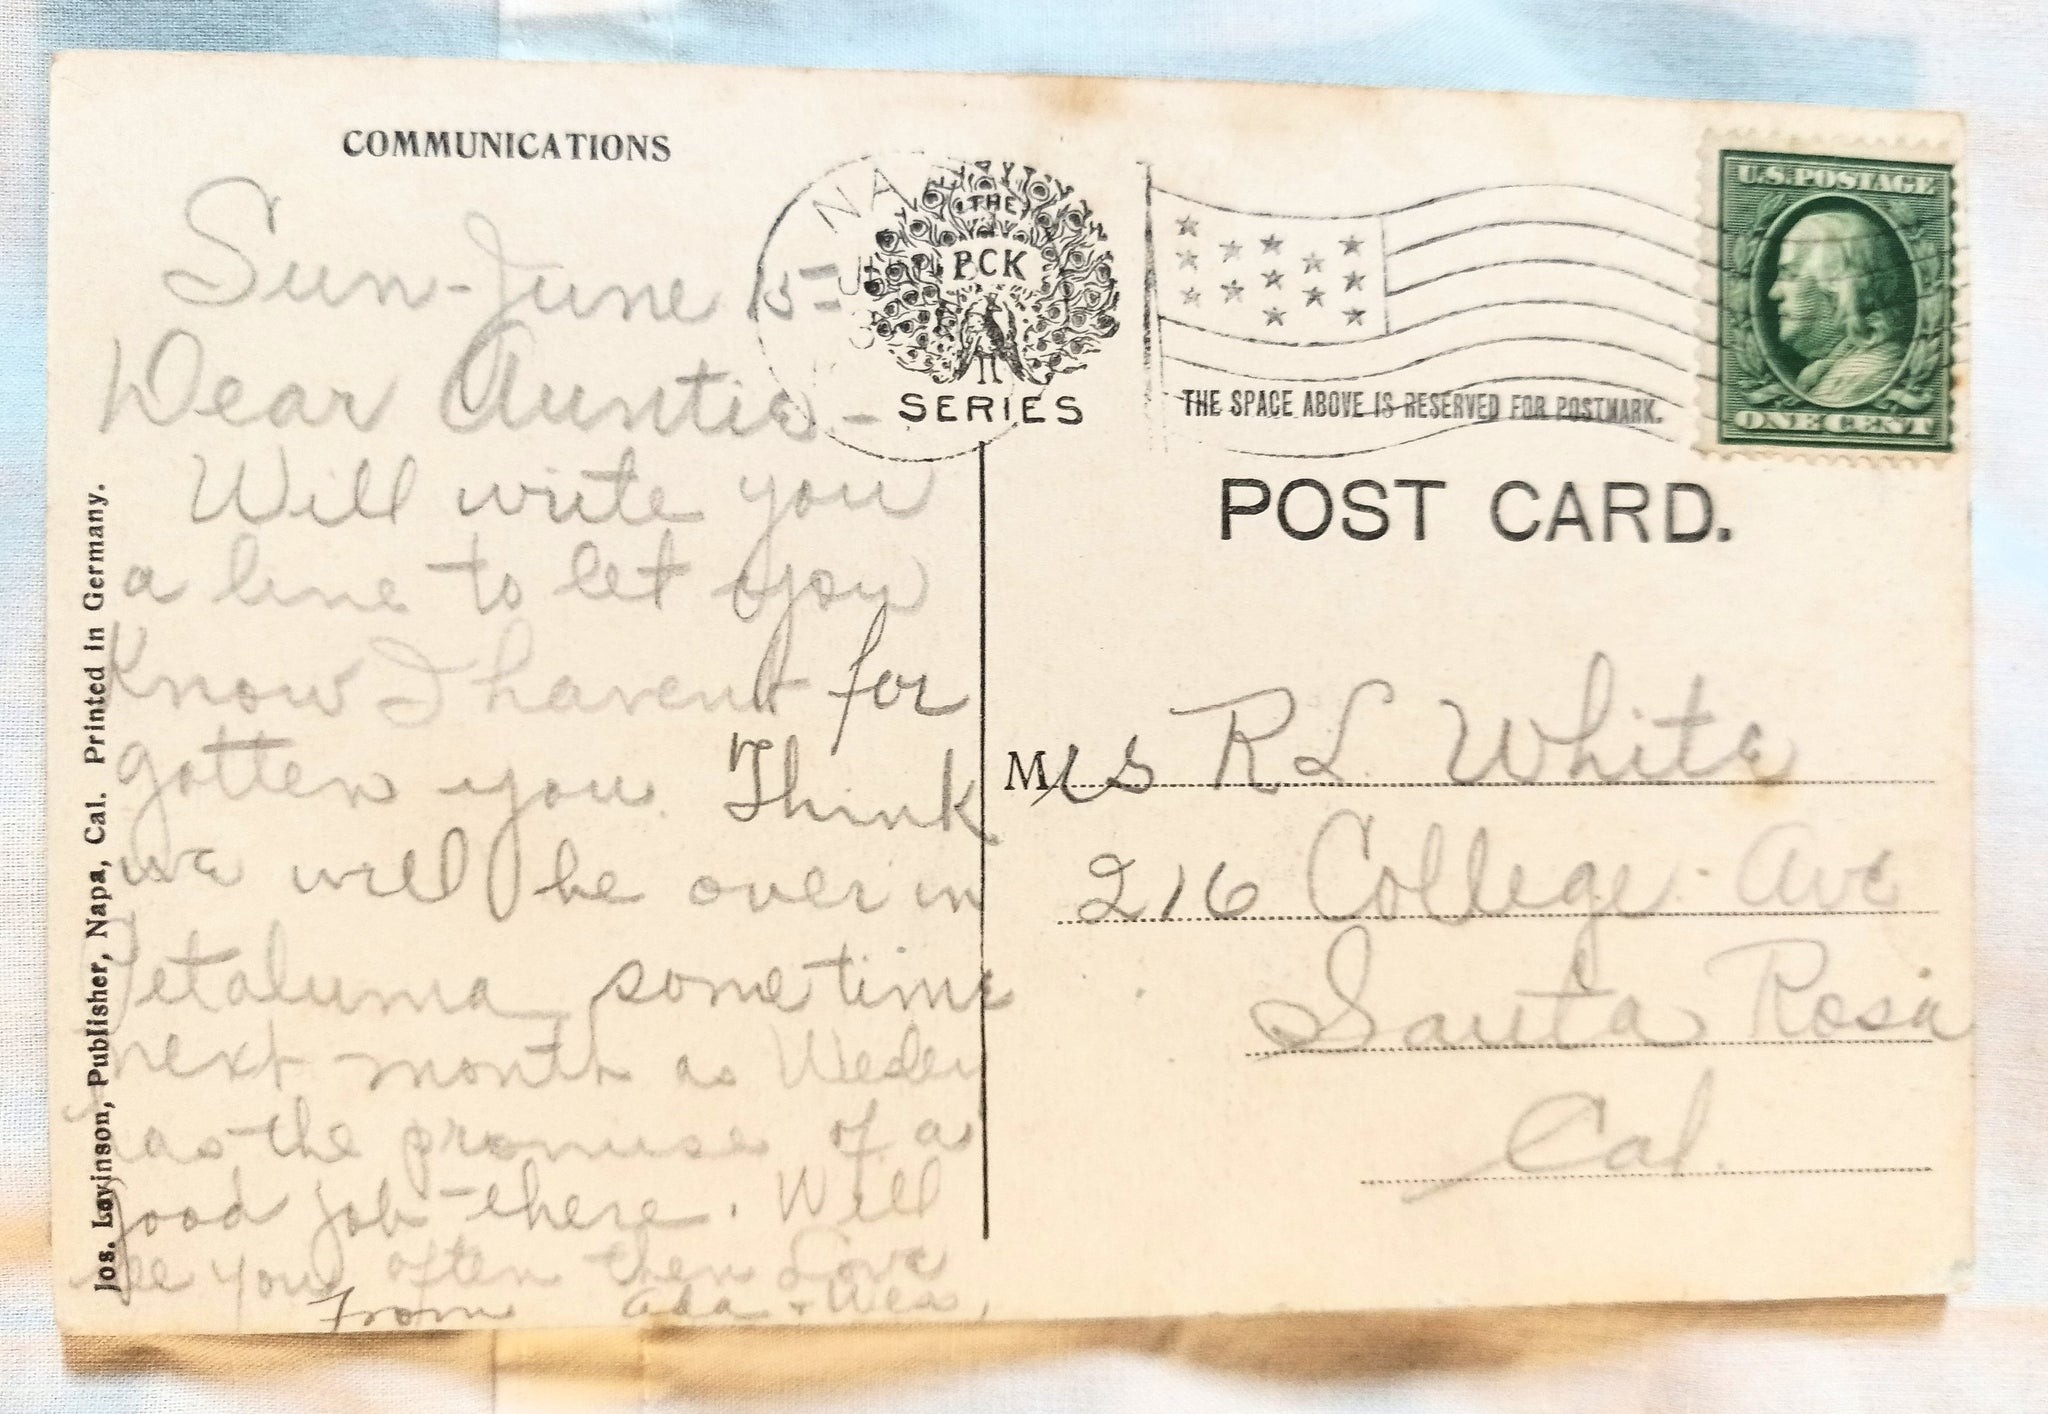 COMMUNICATIONS
Sun-June
Dear Auntie-
Will write you
a line to let you
Know I havent for
gotten you. Think
we will be over in
Petaluma sometime
next month as
has the promise of a
good job there. Will
see you often then Love
From Ada +
Jos. Levinson, Publisher, Napa, Cal. Printed in Germany.
NA
THE
PCK
SERIES
THE SPACE ABOVE IS RESERVED FOR POSTMARK.
U.S. POSTAGE
ONE CENT
POST CARD.
Mrs R.L. White
216 College Ave
Santa Rosa
Cal.